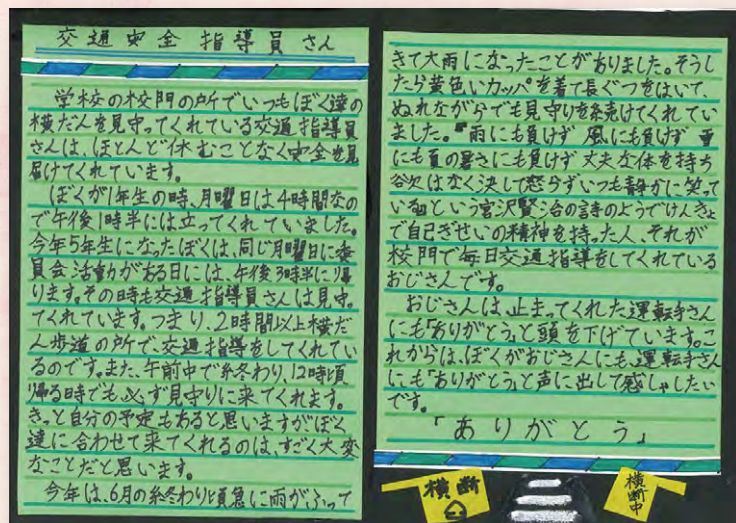 交通安全指導員さん
学校の校門の所でいつもぼく達の
横だんを見守ってくれている交通指導員
さんは、ほとんど休むことなく安全を見
届けてくれています。
ぼくが1年生の時、月曜日は4時間なの
で午後1時半には立ってくれていました。
今年5年生になったぼくは、同じ月曜日に委
員会活動がある日には、午後3時半に帰
ります。その時も交通指導員さんは見守っ
てくれています。つまり、2時間以上横だ
ん歩道の所で、交通指導をしてくれてい
るのです。また、午前中で終わり、12時頃
帰る時でも必ず見守りに来てくれます。
きっと自分の予定もあると思いますがぼく
達に合わせて来てくれるのは、すごく大変
なことだと思います。
今年は、6月の終わり頃急に雨がふって
きて大雨になったことがありました。そうし
たら黄色いカッパを着て長ぐつをはいて、
ぬれながらでも見守りを続けてくれてい
ました。『雨にも負けず 風にも負けず 雪
にも夏の暑さにも負けず 丈夫な体を持ち
欲はなく決して怒らずいつも静かに笑って
いる』という宮沢賢治の詩のようでけんきょ
で自己ぎせいの精神を持った人、それが
校門で毎日交通指導をしてくれている
おじさんです。
おじさんは、止まってくれた運転手さん
にも「ありがとう」と頭を下げています。こ
れからは、ぼくがおじさんにも、運転手さん
にも「ありがとう」と声に出して感しゃしたい
です。
「ありがとう」
横断
横断中